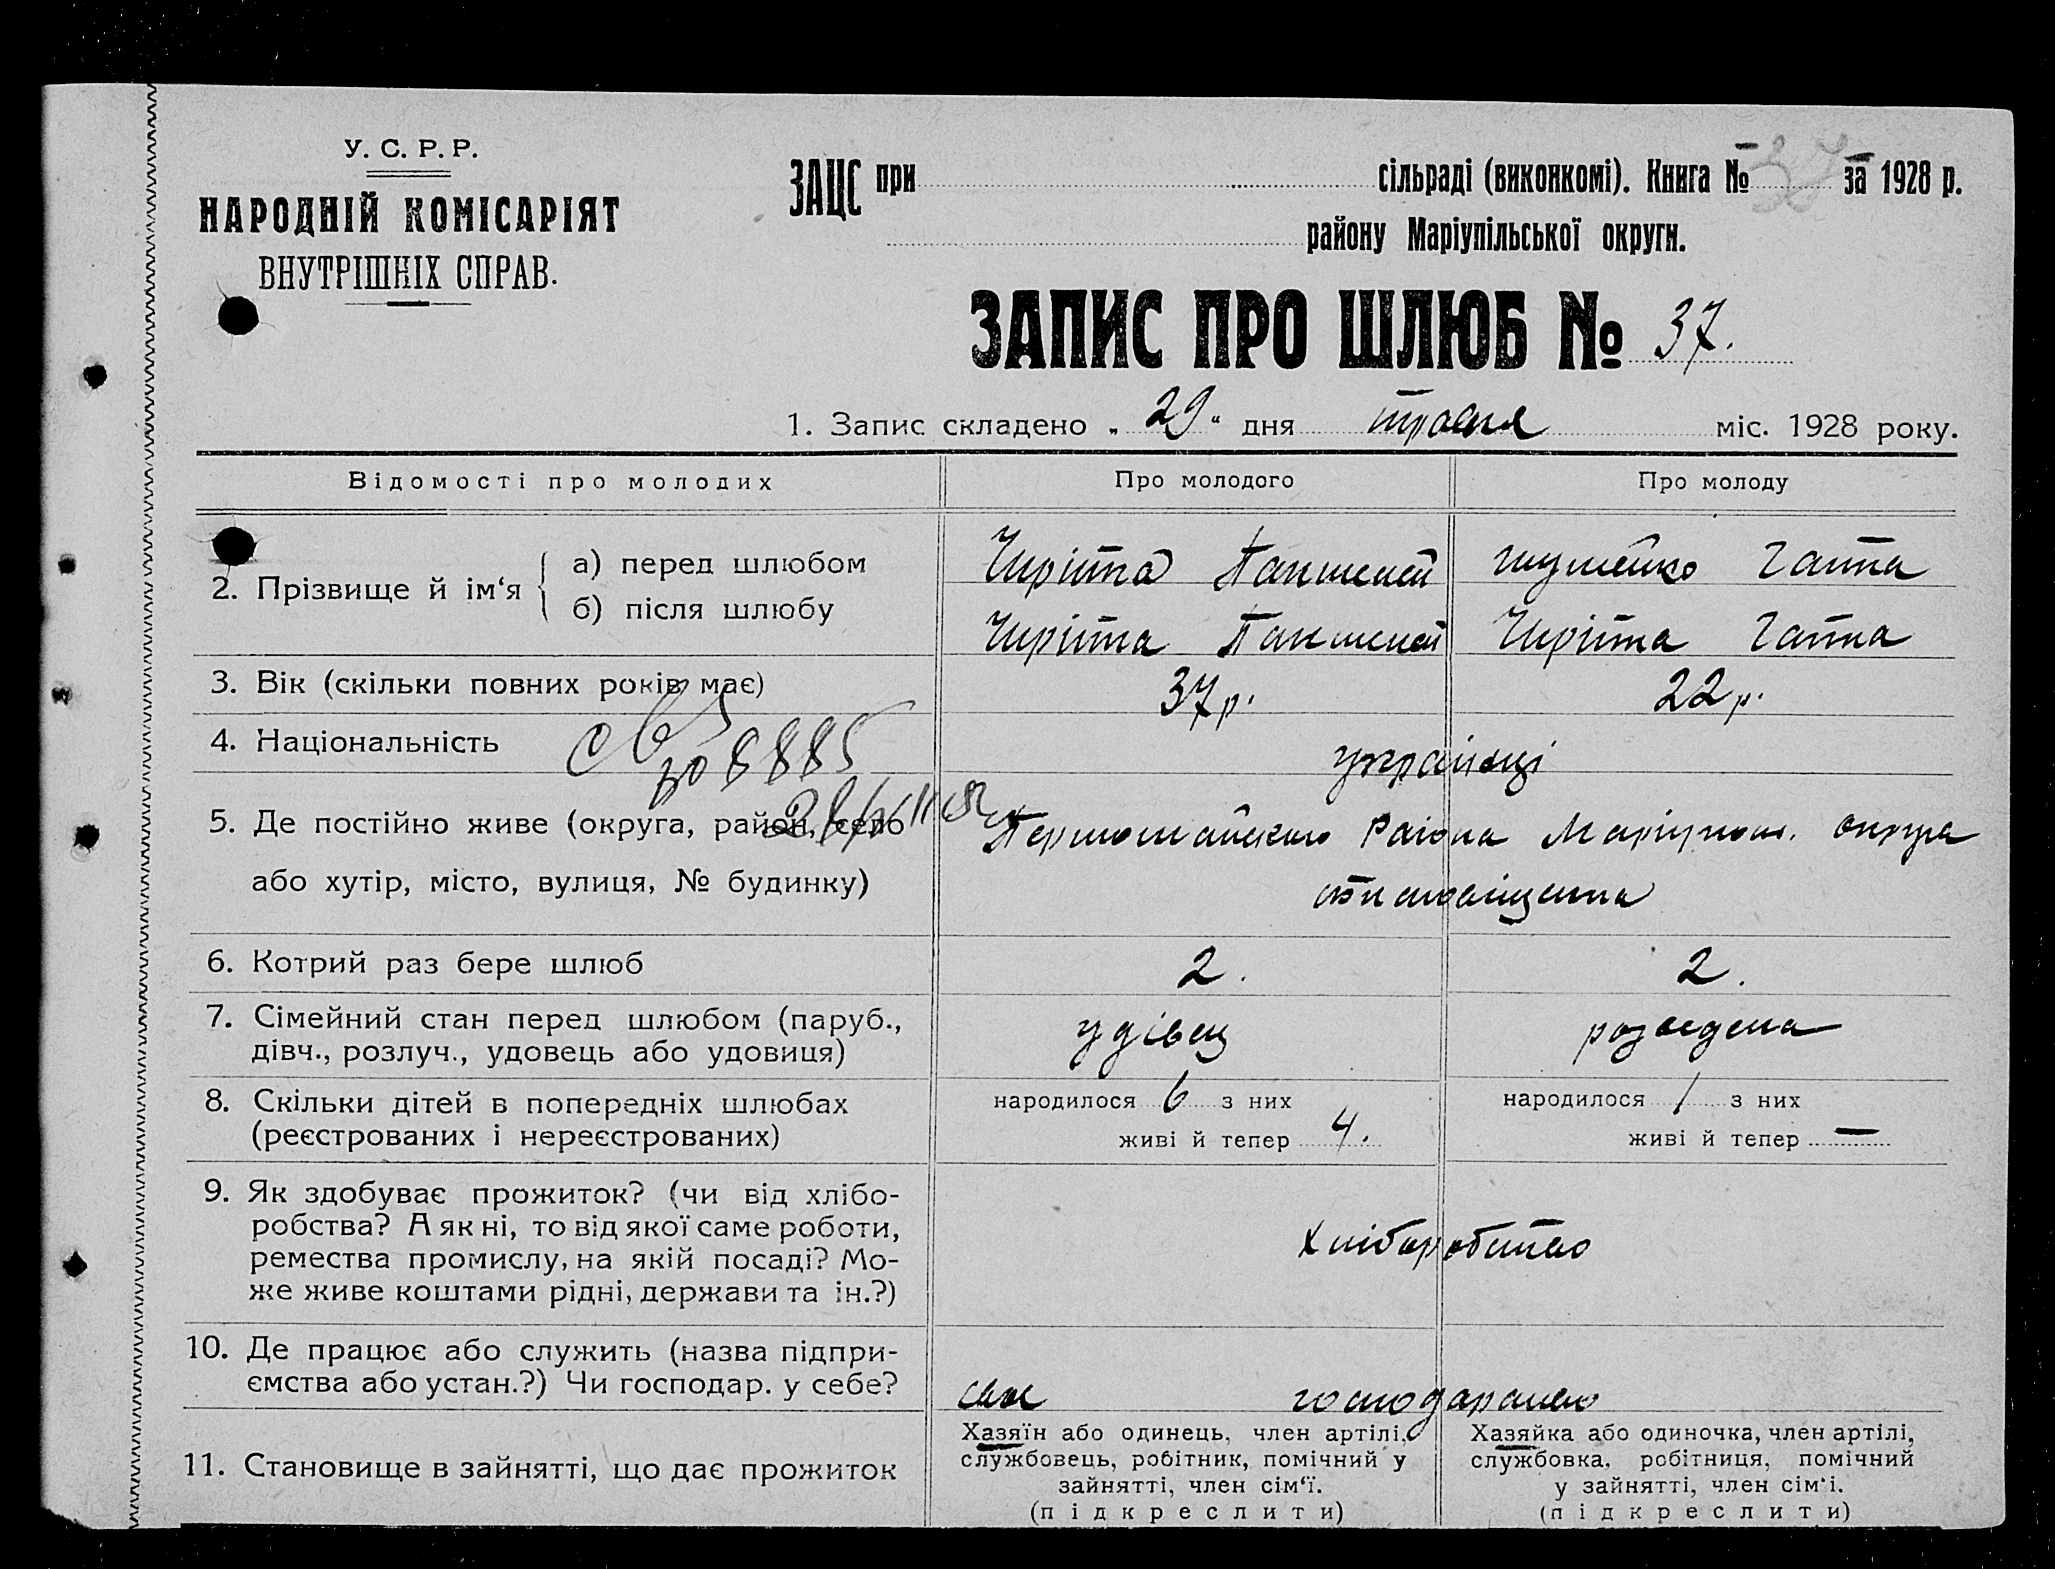 У. С. Р. Р.
НАРОДНІЙ КОМІСАРІЯТ
ВНУТРІШНІХ СПРАВ.
ЗАЦС при сільраді (виконкомі). Книга № 37 за 1928 р.
району Маріупільської округи.
ЗАПИС ПРО ШЛЮБ № 37.
1. Запис складено „ 29 “ дня травня міс. 1928 року.
Відомості про молодих
Про молодого
Про молоду
2. Прізвище й ім‘я
а) перед шлюбом
Чиріта Пантелей
Шумейко Ганна
б) після шлюбу
Чиріта Пантелей
Чиріта Ганна
3. Вік (скільки повних років має)
37 р.
22 р.
4. Національність
українці
№ 8885
5. Де постійно живе (округа, район, село
або хутір, місто, вулиця, № будинку)
Першомайського Района Маріупол. округа
6. Котрий раз бере шлюб
2.
2.
7. Сімейний стан перед шлюбом (паруб.,
дівч., розлуч., удовець або удовиця)
удівець
розведена
8. Скільки дітей в попередніх шлюбах
(реєстрованих і нереєстрованих)
народилося 6 з них
живі й тепер 4.
народилося 1 з них
живі й тепер —
9. Як здобуває прожиток? (чи від хлібо-
робства? А як ні, то від якої саме роботи,
ремества промислу, на якій посаді? Мо-
же живе коштами рідні, держави та ін.?)
Хліборобство
10. Де працює або служить (назва підпри-
ємства або устан.?) Чи господар. у себе?
своє господарство
11. Становище в зайнятті, що дає прожиток
Хазяїн або одинець, член артілі,
службовець, робітник, помічний у
зайнятті, член сім‘ї.
(підкреслити)
Хазяйка або одиночка, член артілі,
службовка, робітниця, помічний
у зайнятті, член сім‘і.
(підкреслити)